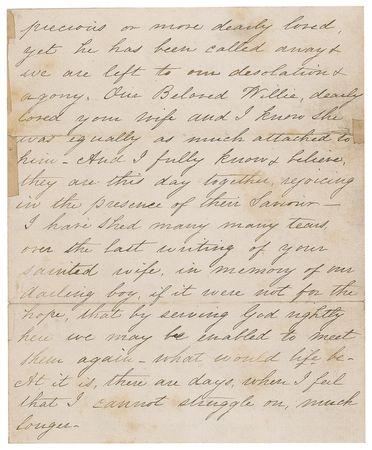 precious or more dearly loved,
yet he has been called away &
we are left to our desolation &
agony. Our Beloved Willie, dearly
loved your wife and I know she
was equally as much attached to
him - And I fully know & believe,
they are this day together, rejoicing
in the presence of their Saviour -
I have shed many many tears,
over the last writing of your
sainted wife, in memory of our
darling boy, if it were not for the
hope, that by serving God rightly
here we may be enabled to meet
them again - what would life be -
As it is, there are days, when I feel
that I cannot struggle on, much
longer -